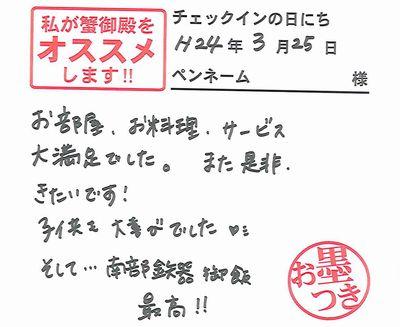 私が蟹御殿を
オススメ
します!!
チェックインの日にち
H24年3月25日
ペンネーム 様
お部屋、お料理、サービス
大満足でした。また是非、
きたいです!
子供も大喜びでした♡
そして…南部鉄器御飯
最高!!
お墨
つき